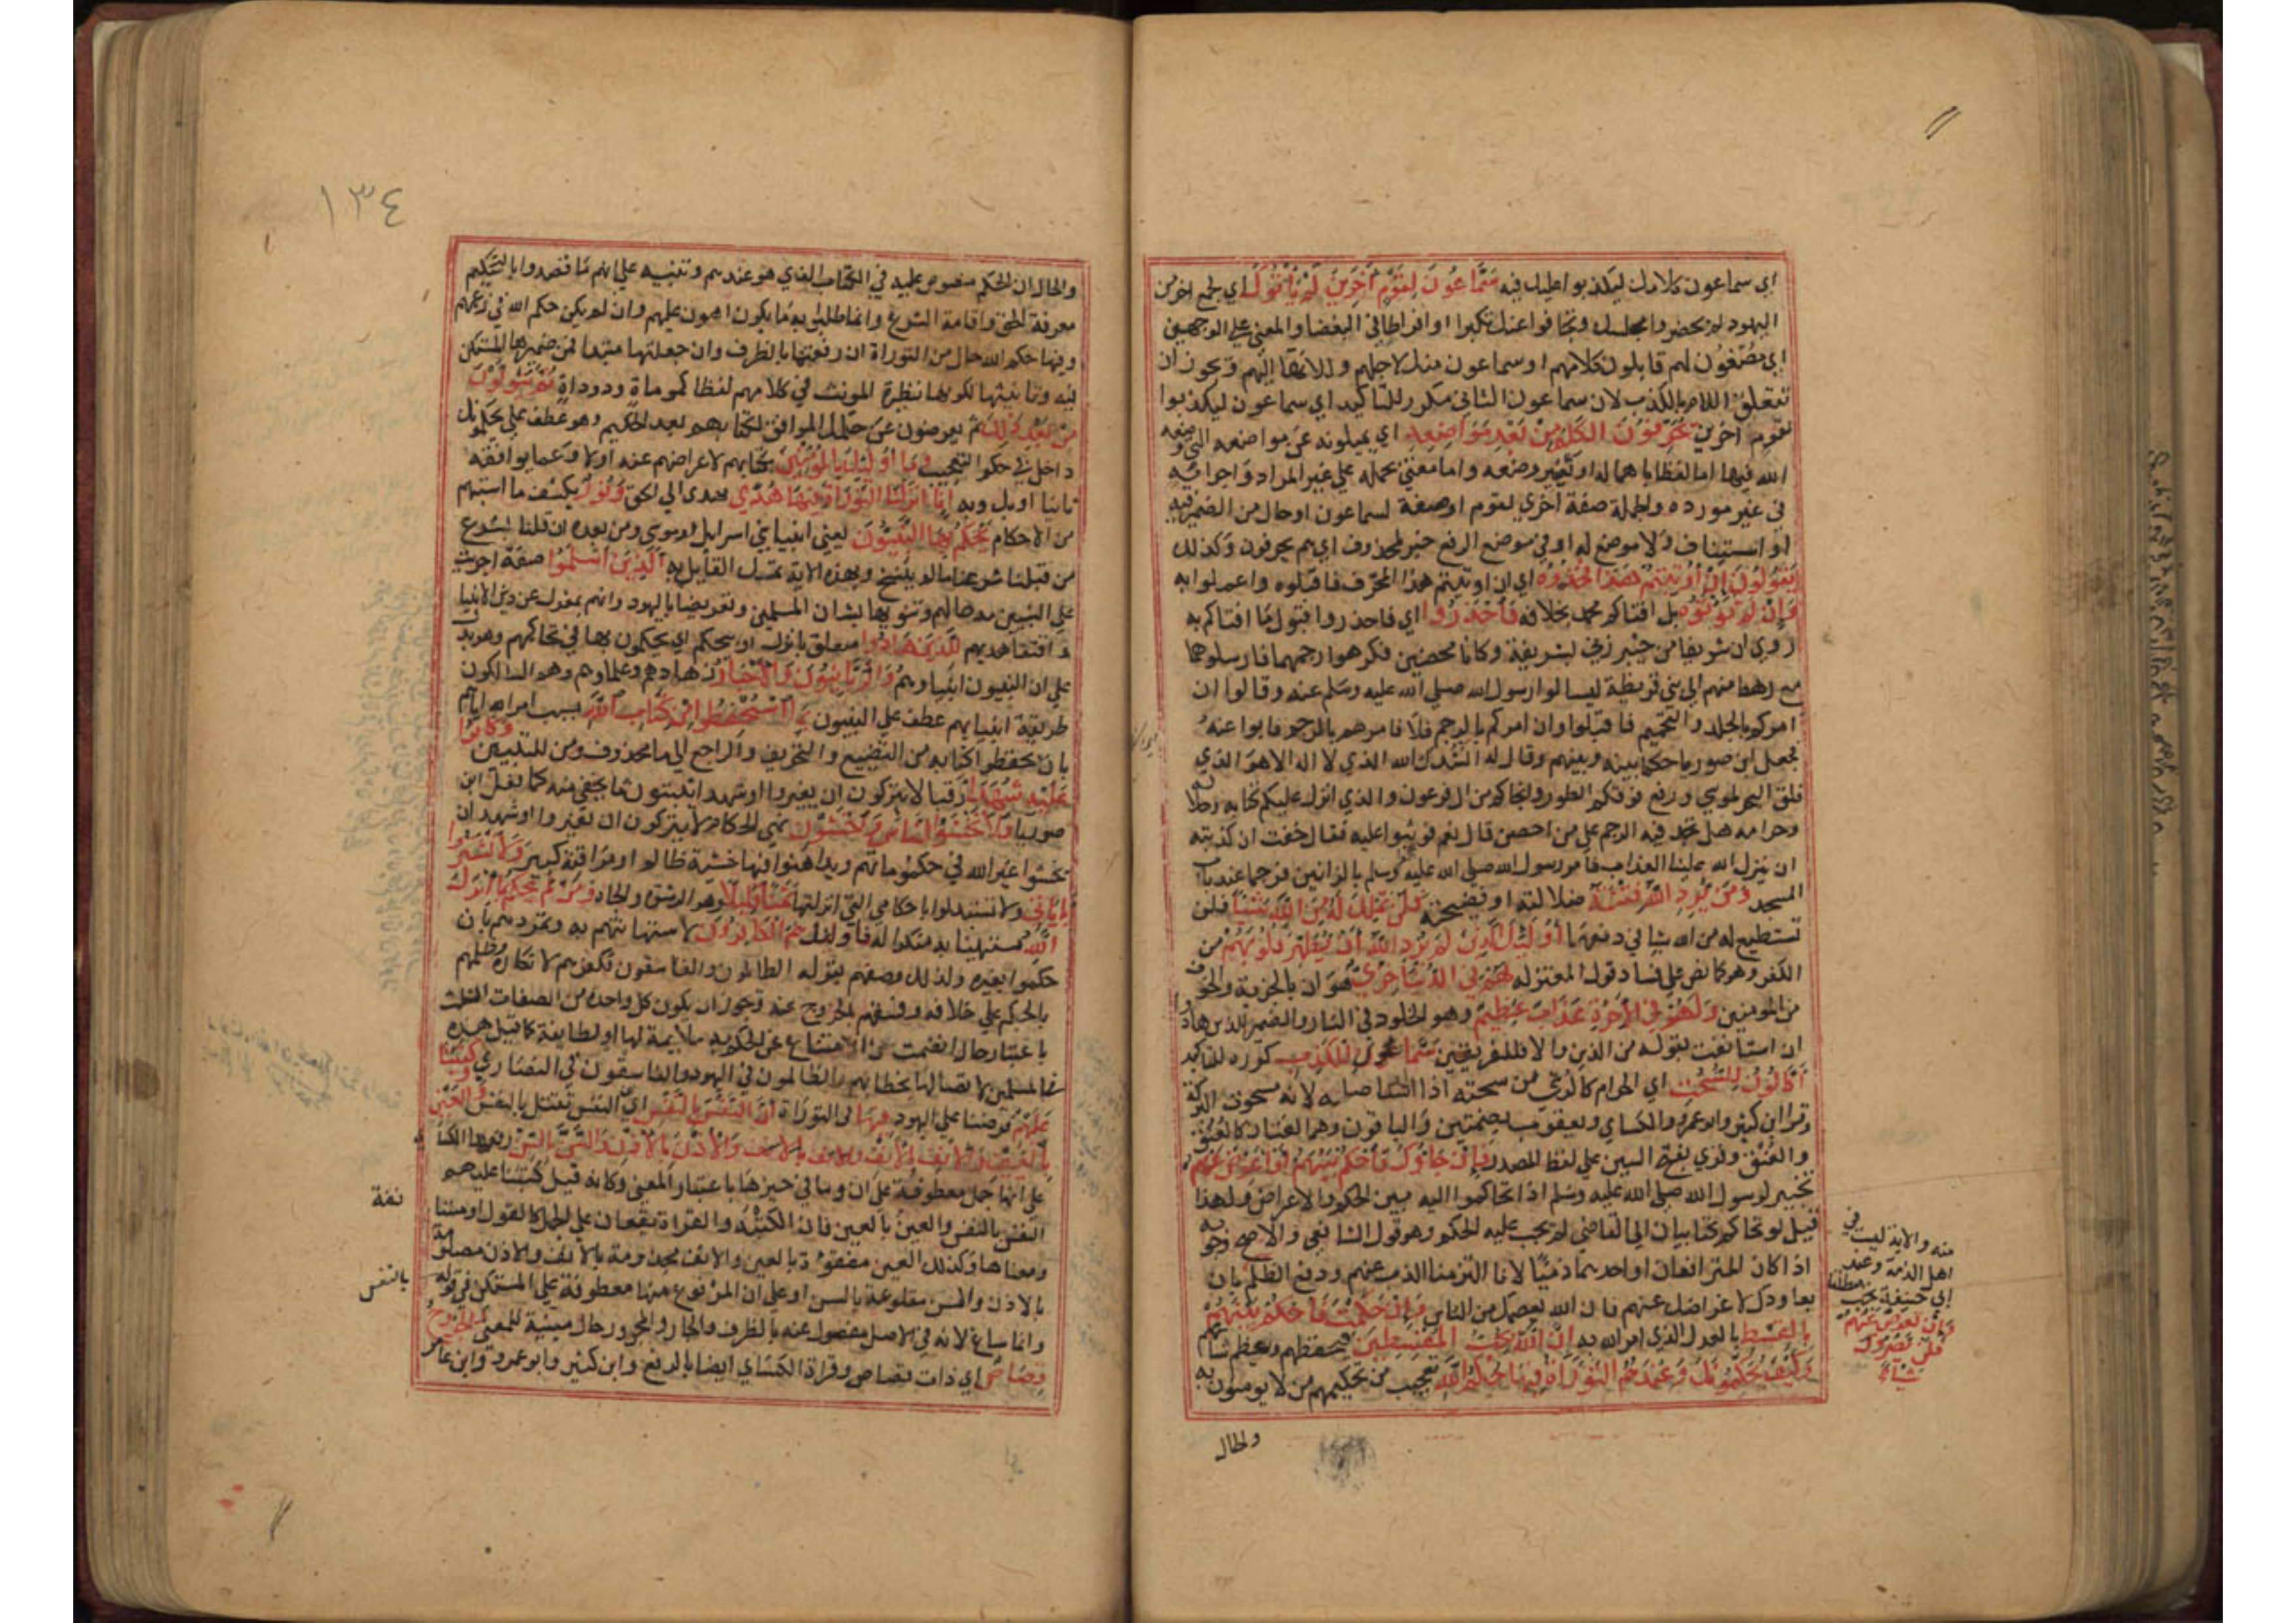 اي سماعون كلامك ليكذبوا عليك فيه سَمَّاعُونَ لِقَوْمٍ آخَرِينَ لَمْ يَأْتُوكَ اي لجمع اخر من
اليهود لم يحضروا مجلسك وتجافوا عنك تكبرا او افراطا في البغضا والمعني علي الوجهين
اي مُصْغُون لهم قابلون كلامهم او سماعون منك لاجلهم وللانها اليهم ويجوز ان
تتعلق اللام بالكذب لان سماعون الثاني مكرر للتاكيد اي سماعون ليكذبوا
لقوم اخرين يُحَرِّفُونَ الكَلِمَ مِنْ بَعْدِ مَوَاضِعِهِ اي يميلونه عن مواضعه التي وضعه
الله فيها اما لفظا باهماله او تغيير وضعه واما معني بحمله علي غير المراد واجرائه
في غير مورده والجملة صفة اخري لقوم او صفة لسماعون او حال من الضمير فيه
او استيناف ولا موضع له او في موضع الرفع خبر لمحذوف اي هم يحرفون وكذلك
يَقُولُونَ إِنْ أُوتِيتُمْ هَذَا فَخُذُوهُ اي ان اوتيتم هذا المحرّف فاقبلوه واعملوا به
وَإِنْ لَمْ تُؤْتَوْهُ بل افتاكم محمد بخلافه فَاحْذَرُوا اي فاحذروا قبول ما افتاكم به
روي ان شريفا من خيبر زني بشريفة وكانا محصنين فكرهوا رجمهما فارسلوهما
مع رهط منهم الي بني قريظة ليسالوا رسول الله صلي الله عليه وسلم عنه وقالوا ان
امركم بالجلد والتحميم فاقبلوا وان امركم بالرجم فلا فامرهم بالرجم فابوا عنه
فجعل ابن صوريا حكما بينه وبينهم وقال له انشدك الله الذي لا اله الا هو الذي
فلق البحر لموسي ورفع فوقكم الطور وانجاكم من ال فرعون والذي انزل عليكم كتابه وحلاله
وحرامه هل تجد فيه الرجم علي من احصن قال نعم فوثبوا عليه فقال خفت ان كذبته
ان ينزل الله علينا العذاب فامر رسول الله صلي الله عليه وسلم بالزانيين فرجما عند باب
المسجد وَمَنْ يُرِدِ اللَّهُ فِتْنَتَهُ ضلالته او فضيحته فَلَنْ تَمْلِكَ لَهُ مِنَ اللَّهِ شَيْئًا فلن
تستطيع له من الله شيا في دفعها أُولَئِكَ الَّذِينَ لَمْ يُرِدِ اللَّهُ أَنْ يُطَهِّرَ قُلُوبَهُمْ من
الكفر وهو كما نص علي فساد قول المعتزله لَهُمْ فِي الدُّنْيَا خِزْيٌ هوان بالجزية والخوف
من المومنين وَلَهُمْ فِي الآخِرَةِ عَذَابٌ عَظِيمٌ وهو الخلود في النار والضمير للذين هادوا
ان استانفت بقوله من الذين والا فللفريقين سَمَّاعُونَ لِلْكَذِبِ كرره للتاكيد
أَكَّالُونَ لِلسُّحْتِ اي الحرام كالرشي من سحته اذا استاصله لانه مسحوت البركة
وقرا ابن كثير وابو عمرو والكساي ويعقوب بضمتين والباقون وهما لغتان كالعُنُق
والعُنْق وقري بفتح السين علي لفظ المصدر فَإِنْ جَاؤُكَ فَاحْكُمْ بَيْنَهُمْ أَوْ أَعْرِضْ عَنْهُمْ
تخيير لرسول الله صلي الله عليه وسلم اذا تحاكموا اليه بين الحكم والاعراض ولهذا
قيل لو تحاكم كتابيان الي القاضي لم يجب عليه الحكم وهو قول الشافعي والاصح وجوبه
اذا كان المترافعان او احدهما ذميا لانا التزمنا الذب عنهم ودفع الظلم بان
يعادوك لاعراضك عنهم فان الله يعصمك من الناس وَإِنْ حَكَمْتَ فَاحْكُمْ بَيْنَهُمْ
بِالقِسْطِ بالعدل الذي امر الله به إِنَّ اللَّهَ يُحِبُّ المُقْسِطِينَ فيحفظهم ويعظم شانهم
وَكَيْفَ يُحَكِّمُونَكَ وَعِنْدَهُمُ التَّوْرَاةُ فِيهَا حُكْمُ اللَّهِ تعجيب من تحكيمهم من لا يومنون به
والحال
منه والاية ليست في
اهل الذمة وعند
ابي حنيفة يجب مطلقا
وَإِنْ تُعْرِضْ عَنْهُمْ
فَلَنْ يَضُرُّوكَ
شَيْئًا
١٣٤
والحال ان الحكم منصوص عليه في الكتاب الذي هو عندهم وتنبيه علي انهم ما قصدوا بالتحكيم
معرفة الحق واقامة الشرع وانما طلبوا به ما يكون اهون عليهم وان لم يكن حكم الله في زعمهم
وفيها حكم الله حال من التوراة ان رفعتها بالظرف وان جعلتها مبتدا فمن ضميرها المستكن
فيه وتانيثها لكونها نظيرة المونث في كلامهم لفظا كموماة ودوداة ثُمَّ يَتَوَلَّوْنَ
مِنْ بَعْدِ ذَلِكَ ثم يعرضون عن حكمك الموافق لكتابهم بعد التحكيم وهو عطف علي يحكمونك
داخل في حكم التعجيب وَمَا أُولَئِكَ بِالمُؤْمِنِينَ بكتابهم لاعراضهم عنه اولا وعما يوافقه
ثانيا او بك وبه إِنَّا أَنْزَلْنَا التَّوْرَاةَ فِيهَا هُدًى يهدي الي الحق وَنُورٌ يكشف ما استبهم
من الاحكام يَحْكُمُ بِهَا النَّبِيُّونَ يعني انبيا بني اسرائل او موسي ومن بعده ان قلنا شرع
من قبلنا شرعنا ما لم ينسخ وبهذه الاية تمسك القائل به الَّذِينَ أَسْلَمُوا صفة اجريت
علي النبيين مدحا لهم وتنويها بشان المسلمين وتعريضا باليهود وانهم بمعزل عن دين الانبيا
واقتفا هديهم لِلَّذِينَ هَادُوا متعلق بانزل او بيحكم اي يحكمون بها في تحاكمهم وهو يدل
علي ان النبيون انبياوهم وَالرَّبَّانِيُّونَ وَالأَحْبَارُ زهادهم وعلماوهم وهم السالكون
طريقة انبيايهم عطف علي النبيون بِمَا اسْتُحْفِظُوا مِنْ كِتَابِ اللَّهِ بسبب امر الله اياهم
بان يحفظوا كتابه من التضييع والتحريف والراجع الي ما محذوف ومن للتبيين وَكَانُوا
عَلَيْهِ شُهَدَاءَ رقبا لا يتركون ان يغيروا او شهدا يبينون ما يخفي منه كما فعل ابن
صوريا فَلَا تَخْشَوُا النَّاسَ وَاخْشَوْنِ نهي للحكام لا يتركون ان يغيروا او شهدا ان
يخشوا غير الله في حكوماتهم ويداهنوا فيها خشية ظالم او مراقبة كبير وَلَا تَشْتَرُوا
بِآيَاتِي ولا تستبدلوا باحكامي التي انزلتها ثَمَنًا قَلِيلًا هو الرشوة والجاه وَمَنْ لَمْ يَحْكُمْ بِمَا أَنْزَلَ
اللَّهُ مستهينا به منكرا له فَأُولَئِكَ هُمُ الكَافِرُونَ لاستهانتهم به وتمردهم بان
حكموا بغيره ولذلك وصفهم بقوله الظالمون والفاسقون فكفرهم لانكاره وظلمهم
بالحكم علي خلافه وفسقهم بالخروج عنه ويجوز ان يكون كل واحدة من الصفات الثلث
باعتبار حال انضمت الي الامتناع عن الحكم به ملايمة لها او لطايفة كما قيل هذه
في المسلمين لاتصالها بخطابهم والظالمون في اليهود والفاسقون في النصاري وَكَتَبْنَا
عَلَيْهِمْ فرضنا علي اليهود فِيهَا في التوراة أَنَّ النَّفْسَ بِالنَّفْسِ اي ان النفس تقتل بالنفس وَالعَيْنَ
بِالعَيْنِ وَالأَنْفَ بِالأَنْفِ وَالأُذُنَ بِالأُذُنِ وَالسِّنَّ بِالسِّنِّ رفعها الكسا
علي انها جمل معطوفة علي ان وما في حيزها باعتبار المعني وكانه قيل كتبنا عليهم
النفس بالنفس والعين بالعين فان الكتبة والقراة تقعان علي الجمل كالقول او مستا
ومعناها وكذلك العين مفقوءة بالعين والانف مجدومة بالانف والاذن مصلومة
بالاذن والسن مقلوعة بالسن او علي ان المرفوع منها معطوفة علي المستكن في قوله
وانما ساغ لانه في الاصل مفصول عنه بالظرف والجار والمجرور حال مبينة للمعني وَالجُرُوحَ
قِصَاصٌ اي ذات قصاص وقراة الكساي ايضا بالرفع وابن كثير وابو عمرو وابن عامر
نفة
بالنفس